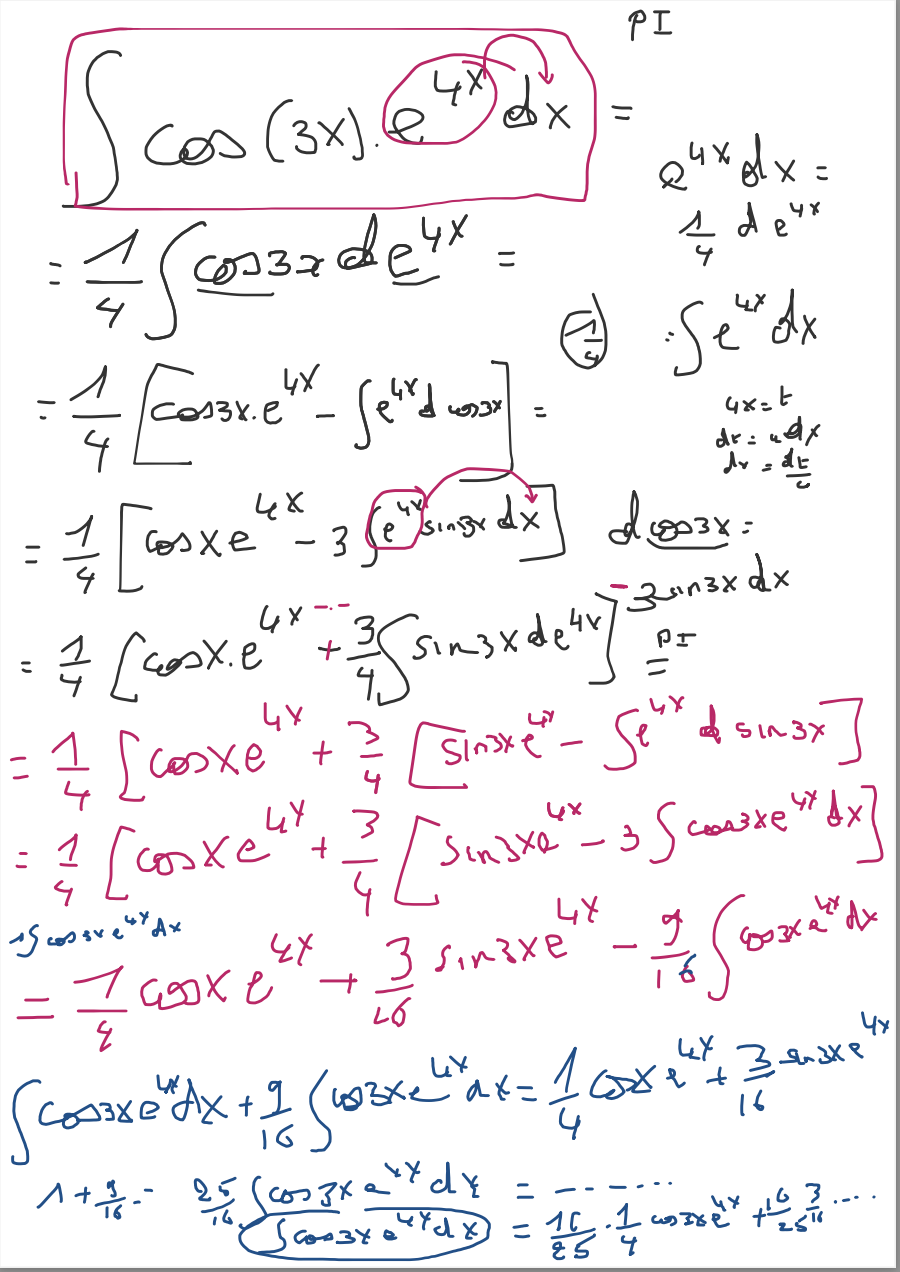 PI
∫ cos (3x) . e^4x dx =
e^4x dx =
1/4 d e^4x
= 1/4 ∫ cos3x d e^4x =
1/4 ∫ e^4x dx
= 1/4 [cos3x. e^4x − ∫ e^4x d cos3x] =
4x = t
dt = 4dx
dx = dt/4
= 1/4 [cosx e^4x − 3 ∫ e^4x sin3x dx]
d cos3x =
− 3 sin3x dx
= 1/4 [cosx. e^4x + 3/4 ∫ sin3x d e^4x] =
PI
= 1/4 [cosx e^4x + 3/4 [sin3x e^4x − ∫ e^4x d sin3x]
= 1/4 [cosx e^4x + 3/4 [sin3x e^4x − 3 ∫ cos3x e^4x dx]
1∫ cos3x e^4x dx
= 1/4 cosx e^4x + 3/16 sin3x e^4x − 9/16 ∫ cos3x e^4x dx
∫ cos3x e^4x dx + 9/16 ∫ cos3x e^4x dx = 1/4 cosx e^4x + 3/16 sin3x e^4x
1 + 9/16 = 25/16 ∫ cos3x e^4x dx = ........
∫ cos3x e^4x dx = 16/25 . 1/4 cos3x e^4x + 16/25 3/16 ....